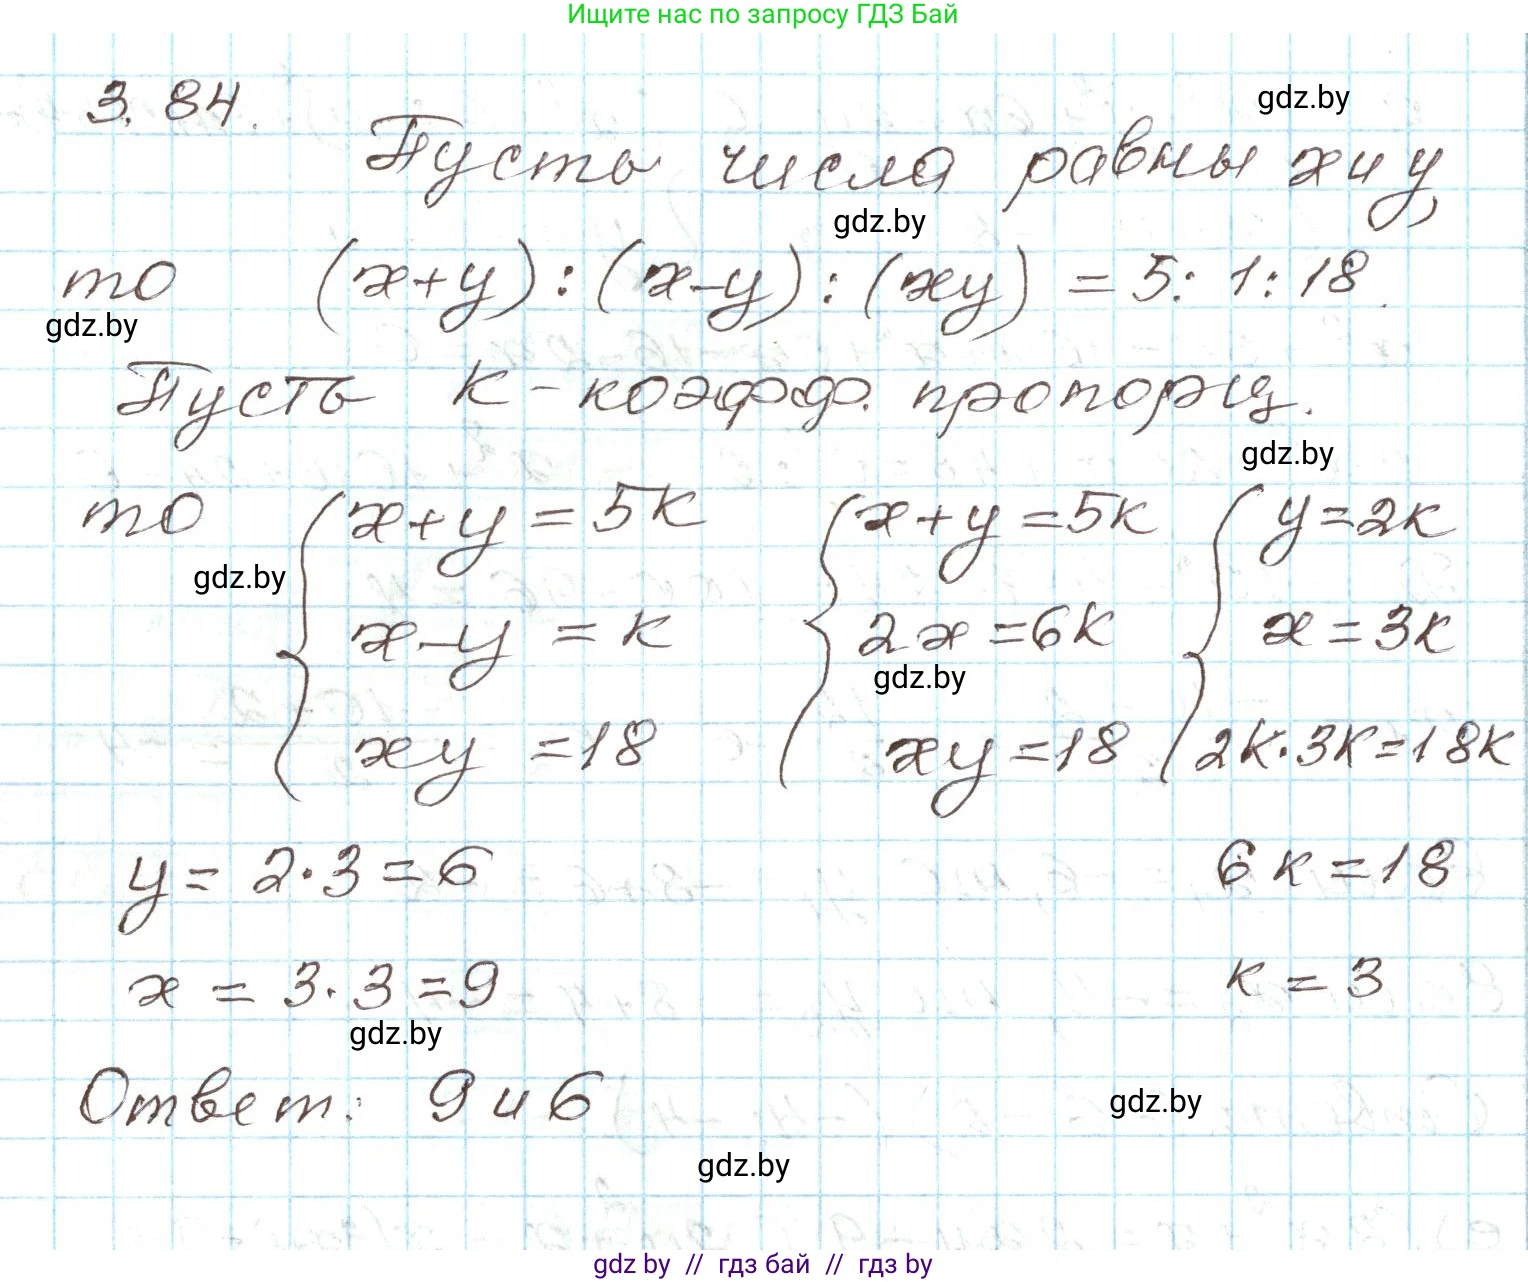 Ищите нас по запросу ГДЗ Бай
3.84.
gdz.by
Пусть числа равны x и y,
gdz.by
то (x+y) : (x-y) : (xy) = 5 : 1 : 18.
gdz.by
Пусть k - коэфф. пропорц.
gdz.by
то { x+y = 5k { x+y = 5k { y = 2k
gdz.by
x-y = k 2x = 6k x = 3k
gdz.by
xy = 18 xy = 18 2k·3k = 18k
y = 2·3 = 6 6k = 18
x = 3·3 = 9 k = 3
gdz.by
Ответ: 9 и 6
gdz.by
gdz.by
gdz.by // гдз бай // гдз by